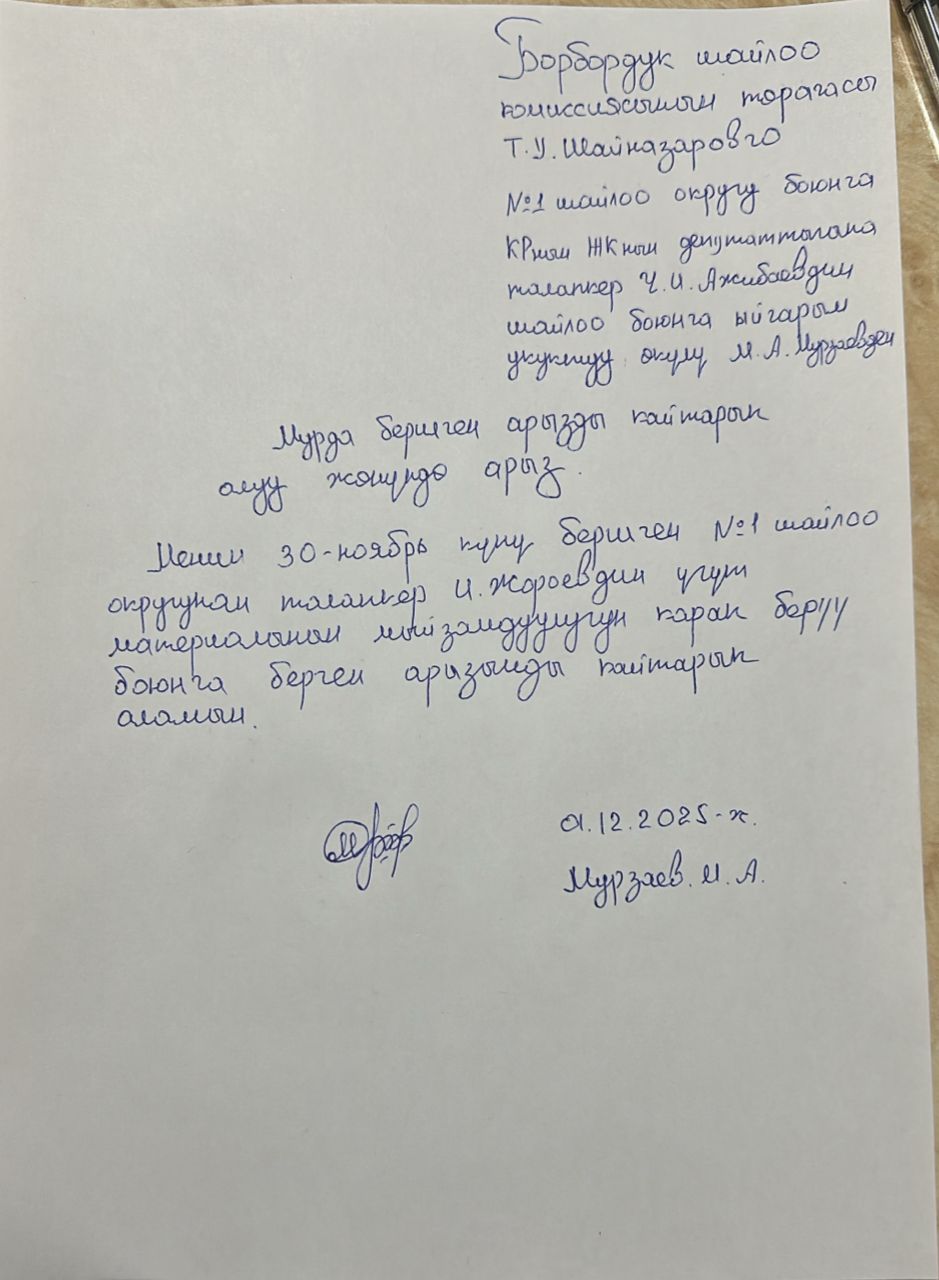 Борбордук шайлоо
комиссиясынын төрагасы
Т.У. Шайназаровго
№1 шайлоо округу боюнча
КРнын ЖКнын депутаттыгына
талапкер Ч.И. Ажибаевдин
шайлоо боюнча ыйгарым
укуктуу өкүлү М.А. Мурзаевден
Мурда берилген арызды кайтарып
алуу жөнүндө арыз.
Менин 30-ноябрь күнү берилген №1 шайлоо
округунан талапкер И. Жороевдин үгүт
материалынын мыйзамдуулугун карап берүү
боюнча берген арызымды кайтарып
аламын.
01.12.2025-ж.
Мурзаев. М. А.